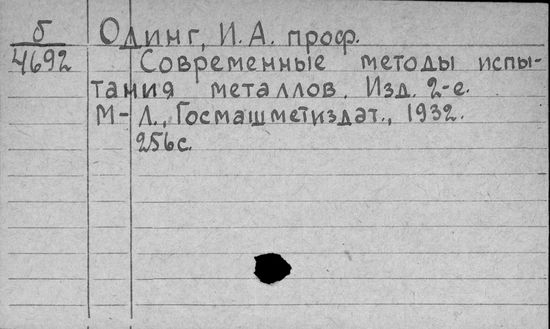 б
4692
Одинг, И. А. проф.
Современные методы испы-
тания металлов. Изд. 2-е.
М-Л., Госмашметиздат., 1932.
256с.